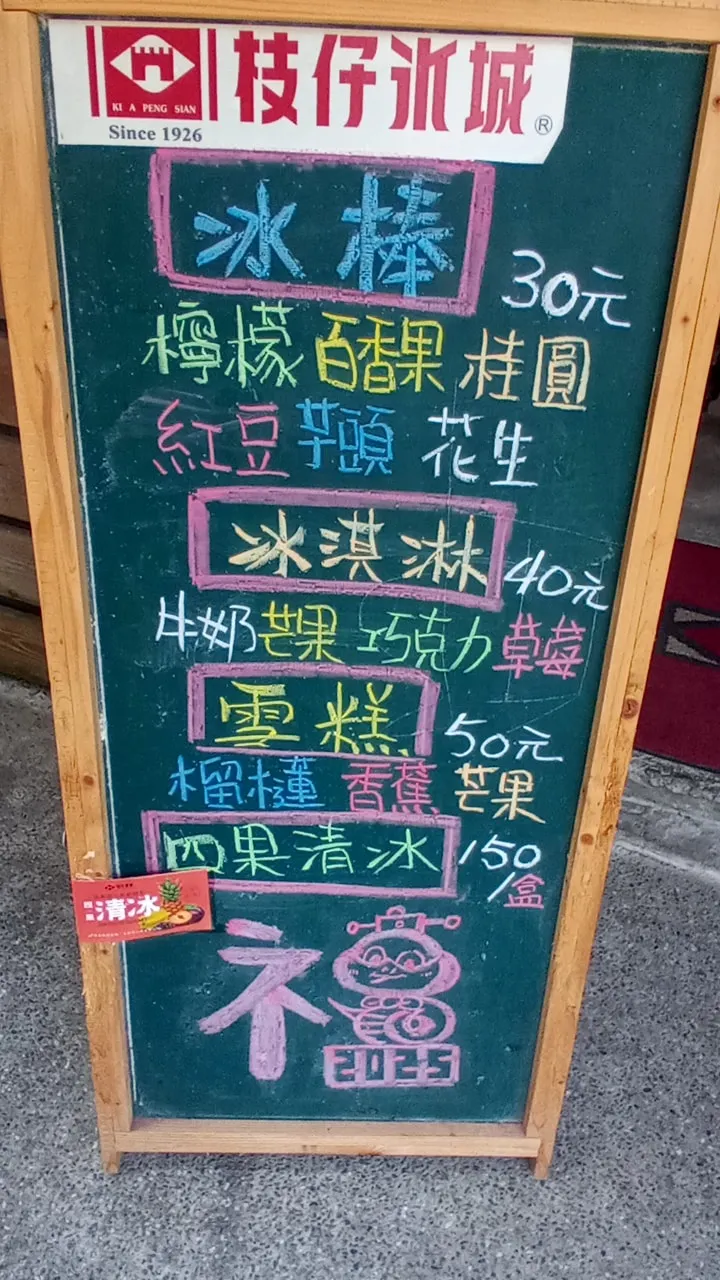 KI A PENG SIAN
枝仔冰城®
Since 1926
冰棒
30元
檸檬 百香果 桂圓
紅豆 芋頭 花生
冰淇淋 40元
牛奶 芒果 巧克力 草莓
雪糕 50元
榴槤 香蕉 芒果
四果清冰 150/盒
清冰
福
2025